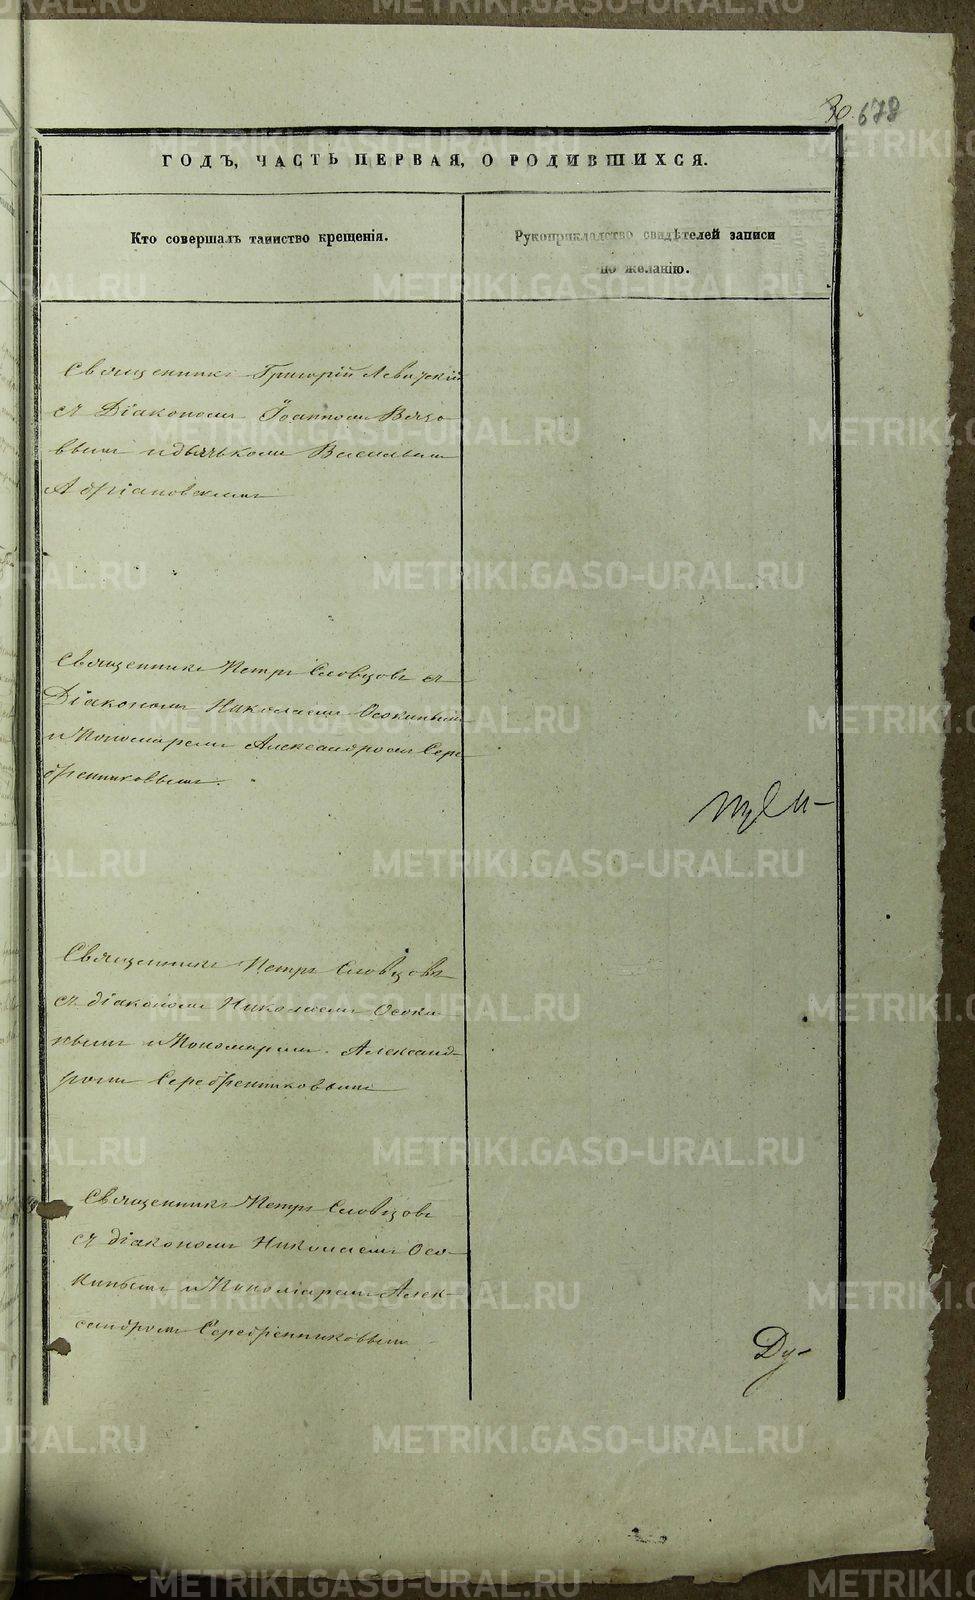 30. 678
ГОДЪ, ЧАСТЬ ПЕРВАЯ, О РОДИВШИХСЯ.
Кто совершалъ таинство крещенія.
Рукоприкладство свидѣтелей записи
по желанію.
Священникъ Григорій Левицкій
съ Діакономъ Іоанномъ Вязо
вымъ и дьячькомъ Василіемъ
Адріановскимъ
Священникъ Петръ Словцовъ съ
Діакономъ Николаемъ Осокинымъ
и Пономаремъ Александромъ Сере
бренниковымъ.
Священникъ Петръ Словцовъ
съ діакономъ Николаемъ Осоки-
нымъ и Пономаремъ Александ-
ромъ Серебренниковымъ
Священникъ Петръ Словцовъ
съ діакономъ Николаемъ Осо-
кинымъ и Пономаремъ Алек-
сандромъ Серебренниковымъ
Ду-
METRIKI.GASO-URAL.RU